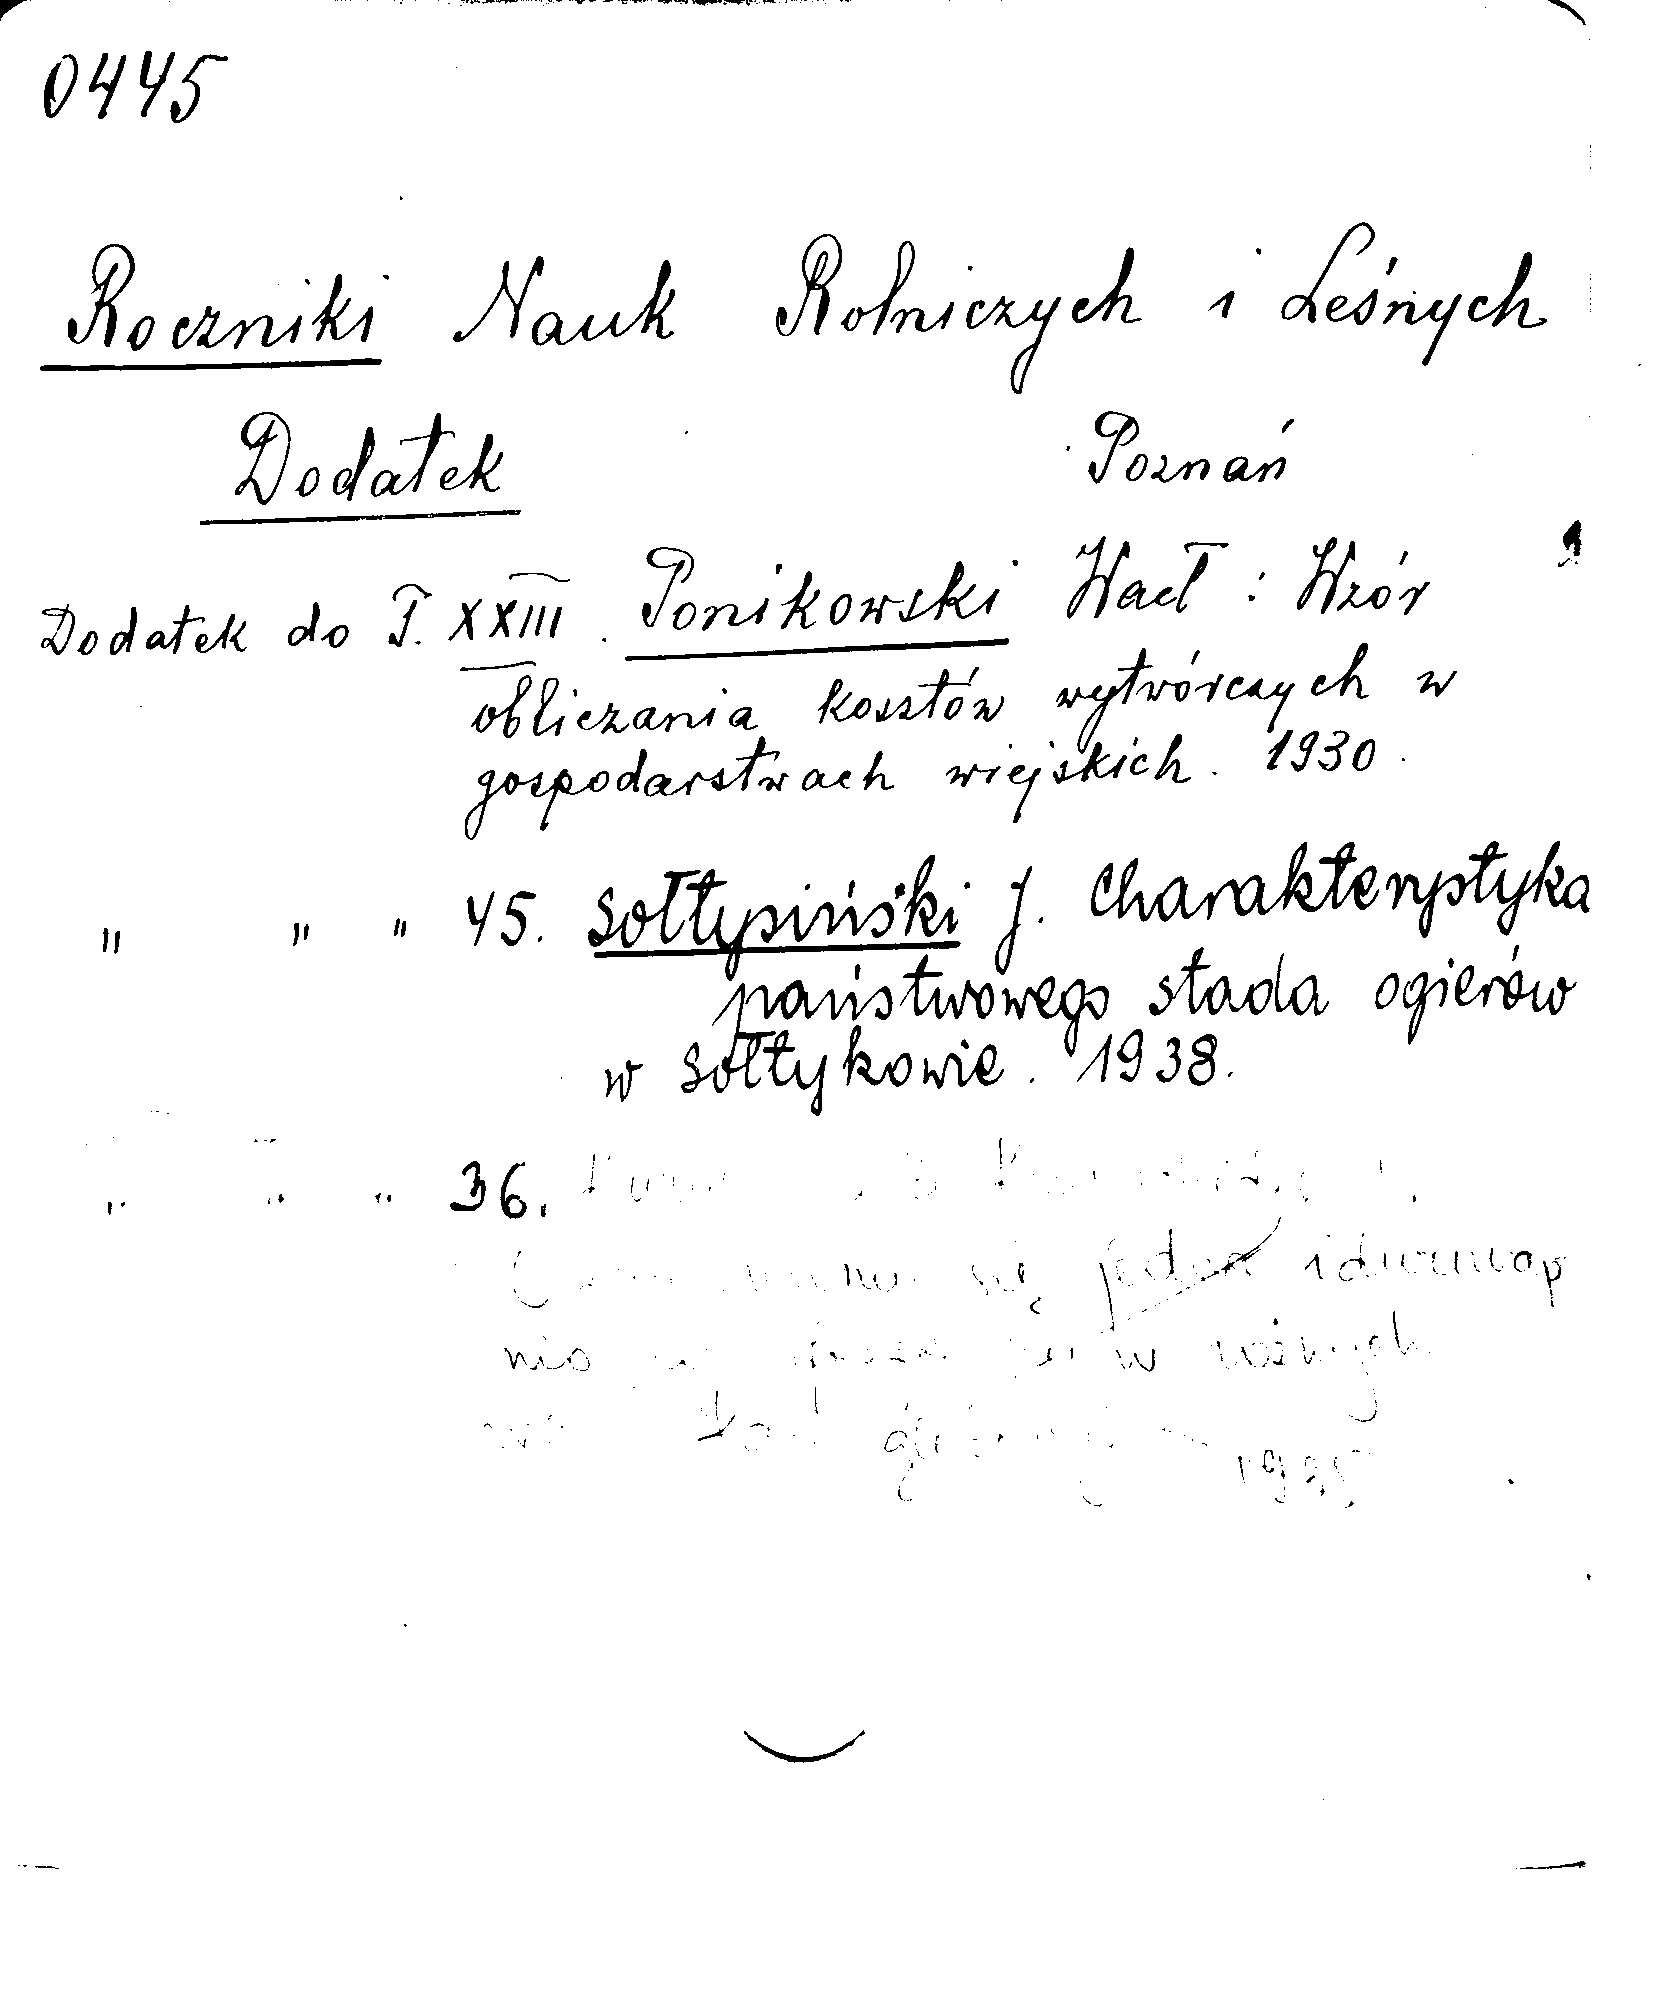 0445
Roczniki Nauk Rolniczych i Leśnych
Dodatek Poznań
Dodatek do T. XXIII. Ponikowski Wacł : Wzór
obliczania kosztów wytwórczych w
gospodarstwach wiejskich. 1930.
" " " 45. Sołtysiński J. Charakterystyka
państwowego stada ogierów
w Sołtykowie. 1938.
" " " 36.
się jeden i
w różnych